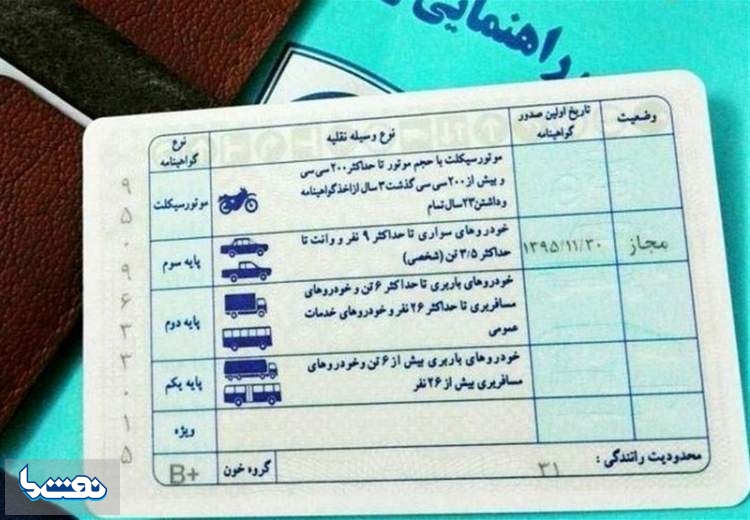 راهنمایی
وضعیت
تاریخ اولین صدور
گواهینامه
نوع وسیله نقلیه
نوع
گواهینامه
موتورسیکلت با حجم موتور تا حداکثر ۲۰۰ سی سی
و بیش از ۲۰۰ سی سی گذشت ۳ سال از اخذ گواهینامه
و داشتن ۲۳ سال تمام
موتورسیکلت
مجاز
۱۳۹۵/۱۱/۳۰
خودروهای سواری تا حداکثر ۹ نفر و وانت تا
حداکثر ۳/۵ تن (شخصی)
پایه سوم
خودروهای باربری تا حداکثر ۶ تن و خودروهای
مسافربری تا حداکثر ۲۶ نفر و خودروهای خدمات
عمومی
پایه دوم
خودروهای باربری بیش از ۶ تن و خودروهای
مسافربری بیش از ۲۶ نفر
پایه یکم
ویژه
محدودیت رانندگی :
۳۱
گروه خون
B+
۹
۵
۰
۹
۶
۳
۳
۰
۱
۵
نقت ما